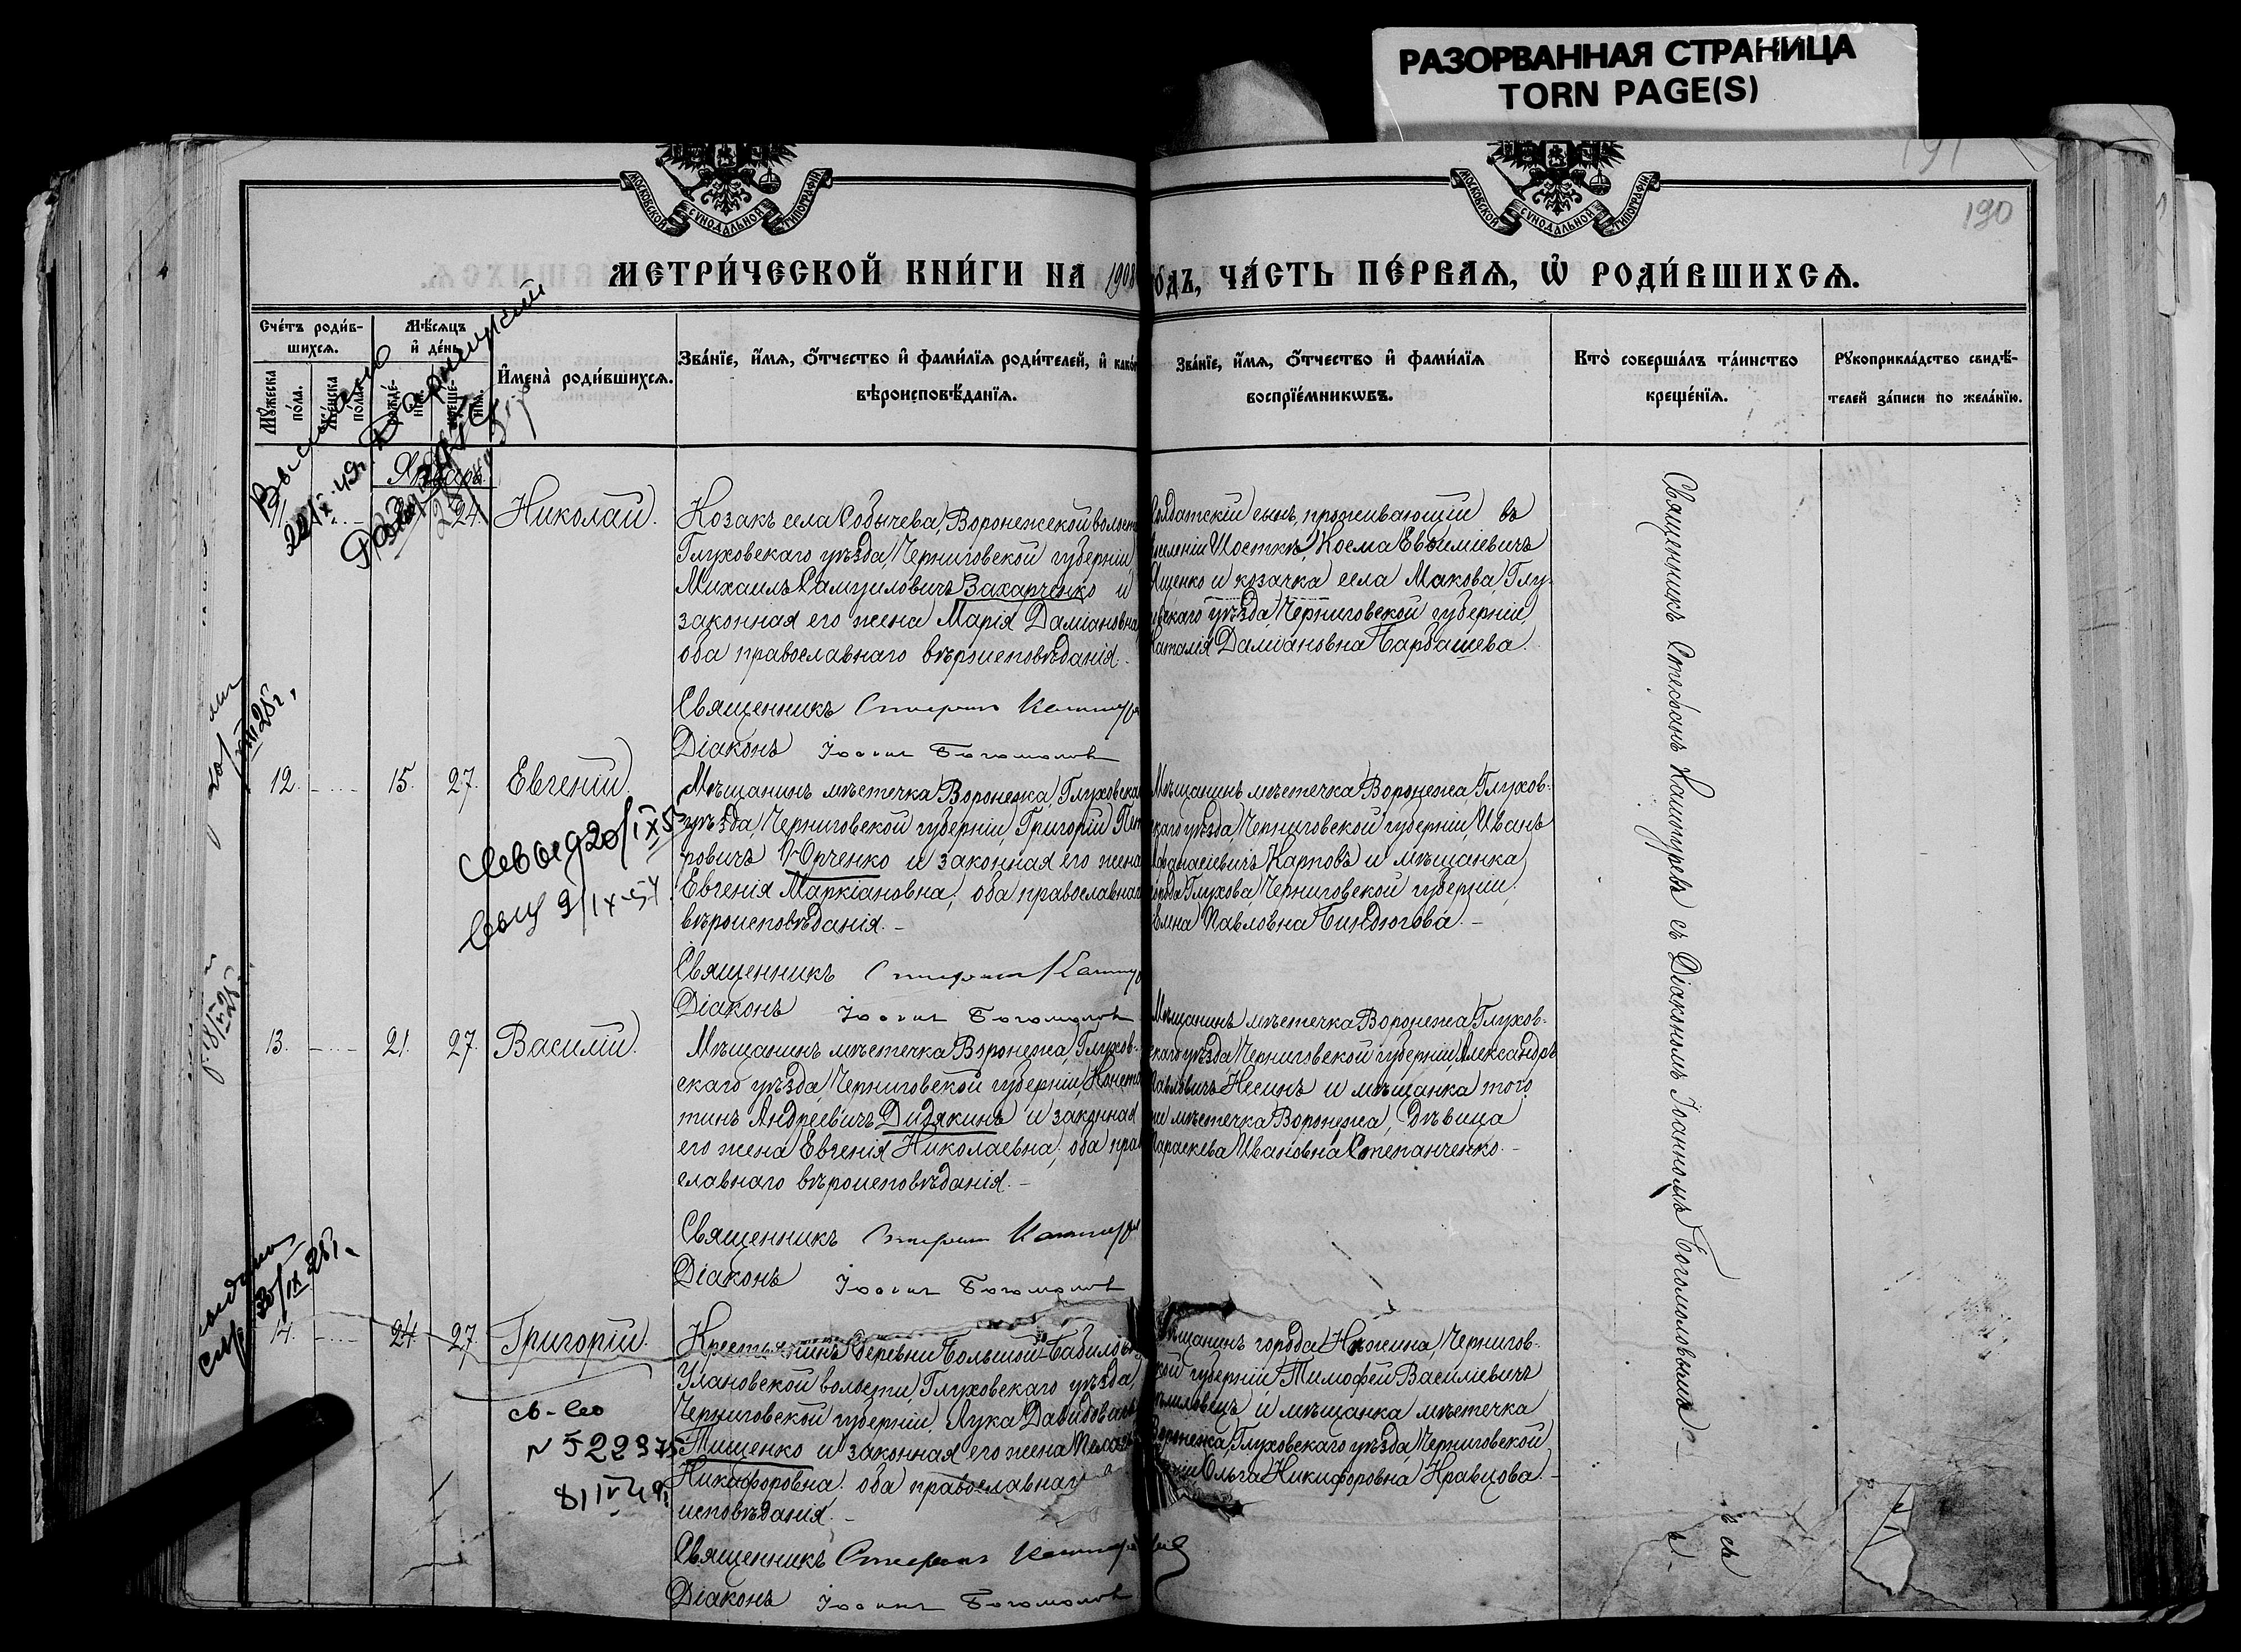 РАЗОРВАННАЯ СТРАНИЦА
TORN PAGE(S)
МОСКОВСКОЙ СУНОДАЛЬНОЙ ТИПОГРАФІИ
МОСКОВСКОЙ СУНОДАЛЬНОЙ ТИПОГРАФІИ
190
МЕТРИ́ЧЕСКОЙ КНИ́ГИ НА 1908 О́ДЪ, ЧА́СТЬ ПЕ́РВАѦ, Ѡ҆ РОДИ́ВШИХСѦ.
Сче́тъ роди́в-
шихсѧ.
Мꙋжеска по́ла.
Же́нска по́ла.
Мѣ́сѧцъ
и҆ де́нь
Рожде́-
нїѧ.
Креще́-
нїѧ.
И҆мена̀ роди́вшихсѧ.
Зва́нїе, и҆́мѧ, ѻ҆́тчество и҆ фами́лїѧ роди́телей, и҆ како́
вѣроисповѣ́данїѧ.
Зва́нїе, и҆́мѧ, ѻ҆́тчество и҆ фами́лїѧ
воспрїе́мникѡвъ.
Кто̀ соверша́лъ та́инство
креще́нїѧ.
Рꙋкоприкла́дство свидѣ́-
телей за́писи по жела́нїю.
24. Николай.
Козакъ села Собычева, Воронежской волост
Глуховскаго уѣзда, Черниговской губерніи,
Михаилъ Самуиловичъ Захарченко и
законная его жена Марія Даміановна
оба православнаго вѣроисповѣданія.
Священникъ Стефанъ
Діаконъ Іоаннъ Богомоловъ
Солдатскій сынъ, проживающій въ
селеніи Шосткѣ, Косма Евѳиміевичъ
Ященко и козачка села Макова, Глу-
вскаго уѣзда, Черниговской губерніи,
Наталія Даміановна Барбашева.
12. 15. 27. Евгеній.
Мѣщанинъ мѣстечка Воронежа, Глуховска
уѣзда, Черниговской губерніи, Григорій Пет
ровичъ Юрченко и законная его жена
Евгенія Маркіановна, оба православнаг
вѣроисповѣданія.-
Священникъ Стефанъ
Діаконъ Іоаннъ Богомоловъ
Мѣщанинъ мѣстечка Воронежа, Глухов-
скаго уѣзда, Черниговской губерніи, Иванъ
Аѳанасіевичъ Карповъ и мѣщанка
города Глухова, Черниговской губерніи,
Елена Павловна Биндюгова.-
13. 21. 27. Василій.
Мѣщанинъ мѣстечка Воронежа, Глухов-
скаго уѣзда, Черниговской губерніи, Конста
тинъ Андреевичъ Дидякинъ и законная
его жена Евгенія Николаевна, оба прав
славнаго вѣроисповѣданія.-
Священникъ Стефанъ
Діаконъ Іоаннъ Богомоловъ
Мѣщанинъ мѣстечка Воронежа, Глухов-
скаго уѣзда, Черниговской губерніи, Александръ
Павловичъ Несинъ и мѣщанка того
же мѣстечка Воронежа, дѣвица
Параскева Ивановна Степанченко.-
14. 24. 27. Григорій.
Крестьянинъ деревни Большой-Бабиловк
Улановской волости, Глуховскаго уѣзда,
Черниговской губерніи, Лука Давидович
Тищенко и законная его жена Пелаг
Никифоровна, оба православнаг
исповѣданія.-
Священникъ Стефанъ
Діаконъ Іоаннъ Богомоловъ
ѣщанинъ города Нѣжина, Чернигов-
кой губерніи, Тимофей Василіевичъ
и мѣщанка мѣстечка
Воронежа, Глуховскаго уѣзда, Черниговской
Ольга Никифоровна Кравцова.-
Священникъ Стефанъ Каштуревъ съ Діакономъ Іоанномъ Богомоловымъ.-